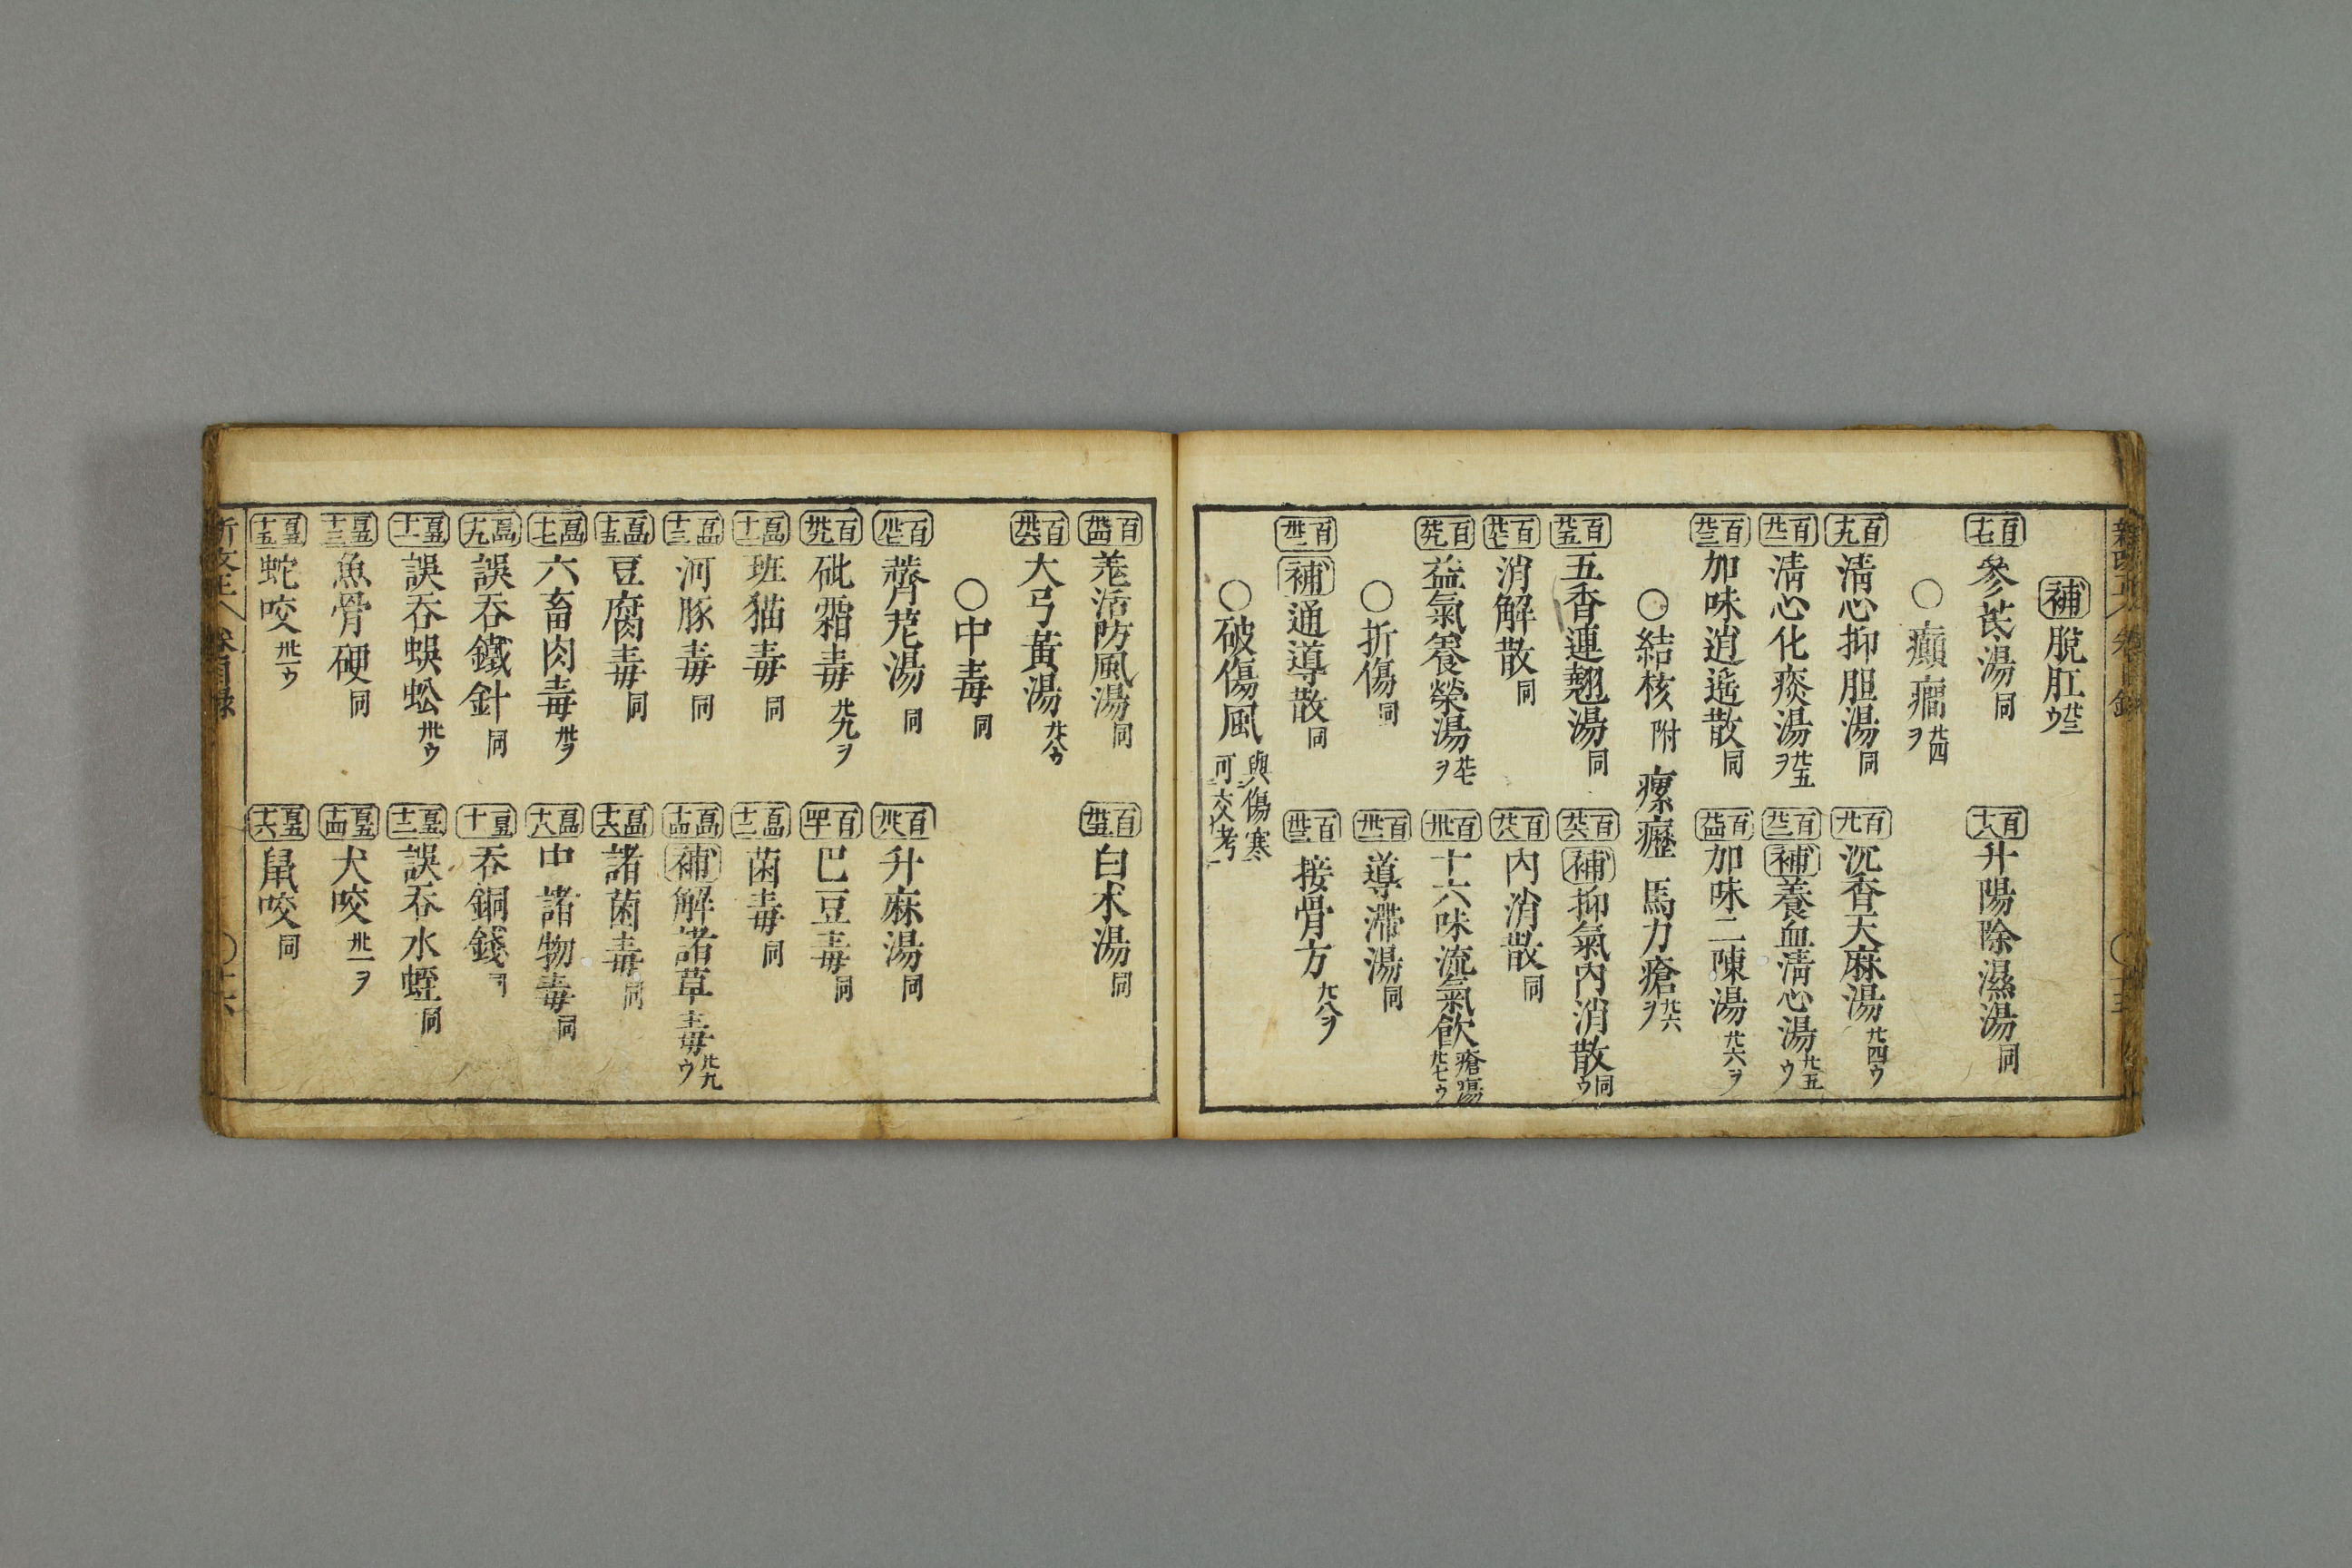 補 脫肛 廿三ウ
百十七 參芪湯 同
百十八 升陽除濕湯 同
○癲癇 廿四ヲ
百十九 清心抑胆湯 同
百廿 沉香天麻湯 廿四ウ
百廿一 清心化痰湯 廿五ヲ
百廿二 補 養血清心湯 廿五ウ
百廿三 加味逍遙散 同
百廿四 加味二陳湯 廿六ヲ
○結核 附 瘰癧 馬刀瘡 廿六ヲ
百廿五 五香連翹湯 同
百廿六 補 抑氣內消散 同ウ
百廿七 消解散 同
百廿八 內消散 同
百廿九 益氣養榮湯 廿七ヲ
百卅 十六味流氣飲 瘡瘍 廿七ウ
○折傷 同
百卅一 導滯湯 同
百卅二 補 通導散 同
百卅三 接骨方 廿八ヲ
○破傷風 與傷寒可交考
百卅四 羗活防風湯 同
百卅五 白朮湯 同
百卅六 大弓黃湯 廿八ウ
○中毒 同
百卅七 薺苨湯 同
百卅八 升麻湯 同
百卅九 砒霜毒 廿九ヲ
百四十 巴豆毒 同
百四十一 班猫毒 同
百四十二 菌毒 同
百四十三 河豚毒 同
百四十四 補 解諸草毒 廿九ウ
百四十五 豆腐毒 同
百四十六 諸菌毒 同
百四十七 六畜肉毒 卅ヲ
百四十八 中諸物毒 同
百四十九 誤吞鐵針 同
百五十 吞銅錢 同
百五十一 誤吞蜈蚣 卅ウ
百五十二 誤吞水蛭 同
百五十三 魚骨硬 同
百五十四 犬咬 卅一ヲ
百五十五 蛇咬 卅一ウ
百五十六 鼠咬 同